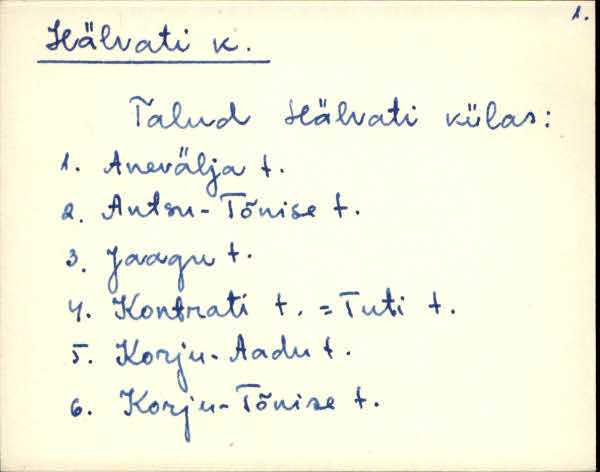 1.
Hälvati k.
Talud Hälvati külas:
1. Anevälja t.
2. Antsu-Tõnise t.
3. Jaagu t.
4. Kontrati t. = Tuti t.
5. Korju-Aadu t.
6. Korju-Tõnise t.